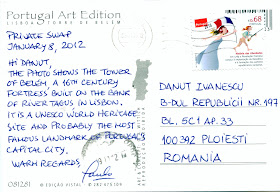 Portugal Art Edition
PRIVATE SWAP
JANUARY 8, 2012
HI DANUT,
THE PHOTO SHOWS THE TOWER
OF BELEM A 16TH CENTURY
FORTRESS BUILT ON THE BANK
OF RIVER TAGUS IN LISBON.
IT IS A UNESCO WORLD HERITAGE
SITE AND PROBABLY THE MOST
FAMOUS LANDMARK OF PORTUGAL'S
CAPITAL CITY.
WARM REGARDS,
Paulo
0,68
DANUT IVANESCU
B-DUL REPUBLICII NR.197
BL. 5C1 AP. 33
100392 PLOIESTI
ROMANIA